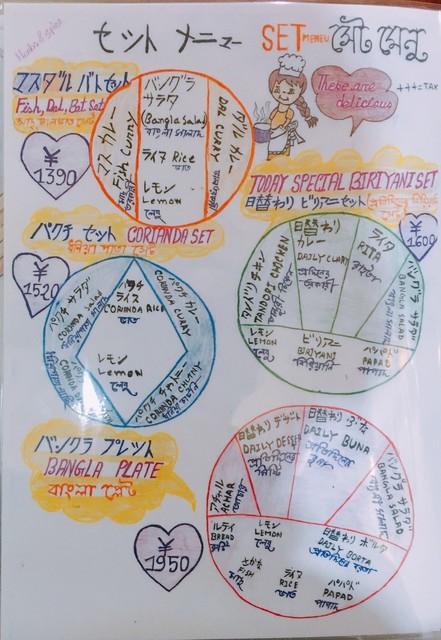 セット メニュー SET MENEU সেট মেনু
These are delicious
+++=TAX
マスダルバトセット
Fish, Dal, Bat Set
¥ 1390
マス カレー
Fish Curry
バングラ
サラダ
(Bangla Salad)
বাংলা সালাদ
ライス Rice
ভাত
レモン
Lemon
লেবু
ダル カレー
DAL CURRY
TODAY SPECIAL BIRIYANI SET
日替わり ビリアニーセット
¥ 1600
タンドリチキン
TANDORI CHICKEN
日替わり
カレー
DAILY CURRY
ライタ
RITA
バングラ サラダ
BANGLA SALAD
レモン
LEMON
লেবু
ビリアニー
BIRIYANI
パパド
PAPAD
পাপাদ
パクチ セット CORIANDA SET
ধনিয়া পাতা সেট
¥ 1520
パクチ サラダ
CORINDA SALAD
パクチ
ライス
CORINDA RICE
ভাত
パクチ カレー
CORINDA CURRY
レモン
LEMON
লেবু
パクチ チャトニー
CORINDA CHUTNY
バングラ プレット
BANGLA PLATE
বাংলা প্লেট
¥ 1950
アチャル
ACHAR
日替わり デザート
DAILY DESSERT
日替わり ブナ
DAILY BUNA
バングラ サラダ
BANGLA SALAD
ルティ
BREAD
রুটি
レモン
LEMON
লেবু
日替わり ボルタ
DAILY BORTA
さかな
FISH
মাছ
ライス
RICE
ভাত
パパド
PAPAD
পাপাদ